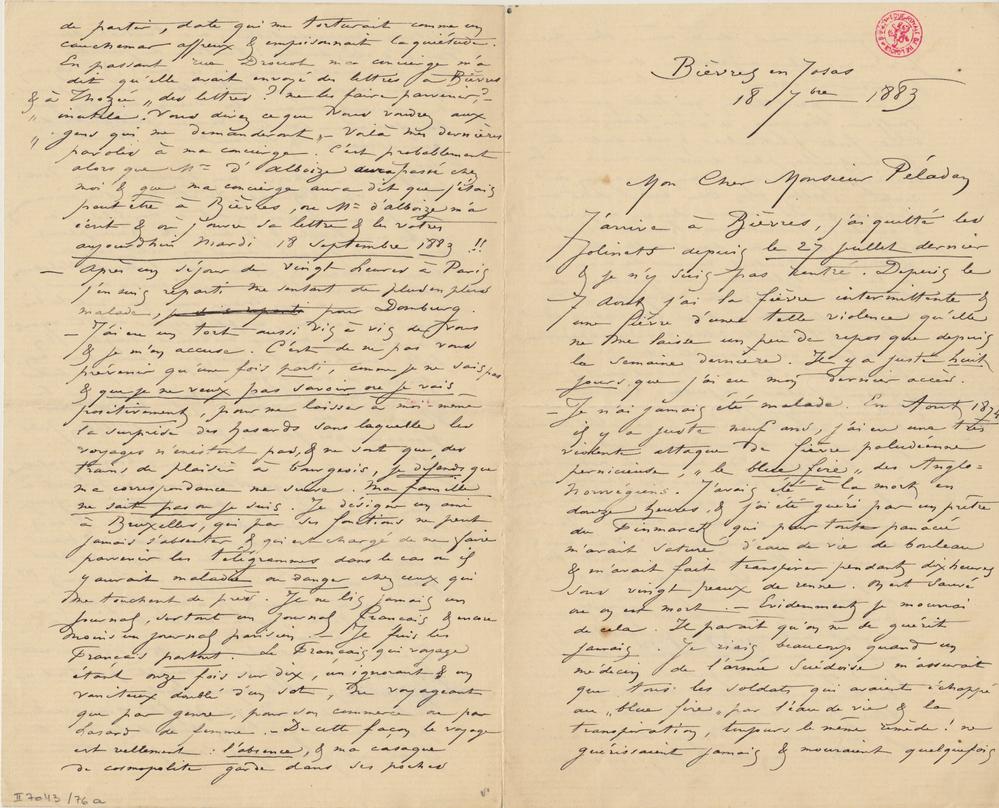 Bièvres en Josas
18 7bre 1883
Mon Cher Monsieur Péladan
J'arrive à Bièvres, j'ai quitté les
depuis le 27 juillet dernier
& je n'y suis pas rentré. Depuis le
7 Août j'ai la fièvre intermittente &
une fièvre d'une telle violence qu'elle
ne me laisse un peu de repos que depuis
la semaine dernière. Il y a juste huit
jours que j'ai eu mon dernier accès.
– Je n'ai jamais été malade. En Août 1874
il y a juste neuf ans, j'ai eu une très
violente attaque de fièvre paludéenne
pernicieuse, "le blue fire" des Anglo-
Norwégiens. J'avais été à la mort en
douze heures, & j'ai été guéri par un prêtre
du Finmarck qui pour toute panacée
m'avait saturé d'eau de vie de bouleau
& m'avait fait transpirer pendant dix heures
sous vingt peaux de renne. On est sauvé
ou on est mort. – Evidemment je mourrai
de cela. Il parait qu'on ne se guérit
jamais. Je riais beaucoup quand un
médecin de l'armée Suédoise m'assurait
que tous les soldats qui avaient échappé
au "blue fire" par l'eau de vie & la
transpiration, toujours le même remède! ne
guérissaient jamais & mouraient quelquefois
de partir, date qui me torturait comme un
cauchemar affreux & empoisonnait la quiétude.
En passant rue Drouot ma concierge m'a
dit qu'elle avait envoyé des lettres à Bièvres
& à Thozée " des lettres? me les faire parvenir? –
" inutile. Vous direz ce que vous voudrez aux
" gens qui me demanderont, – Voilà mes dernières
paroles à ma concierge. C'est probablement
alors que Me d'Alboize aura passé chez
moi & que ma concierge aura dit que j'étais
peut être à Bièvres, où Me d'Alboize m'a
écrit & où j'ouvre sa lettre & les vôtres
aujourd'hui Mardi 18 Septembre 1883 !!
– Après un séjour de vingt heures à Paris
j'en suis reparti me sentant de plus en plus
malade, pour Domburg.
– J'ai eu un tort aussi vis à vis de vous
& je m'en accuse. C'est de ne pas vous
prévenir qu'une fois parti, comme je ne sais pas
& que je ne veux pas savoir où je vais
positivement, pour me laisser à moi-même
la surprise des hasards sans laquelle les
voyages n'existent pas, & ne sont que des
trains de plaisir à bourgeois, je défends que
ma correspondance me suive. Ma famille
ne sait pas où je suis. Je désigne un ami
à Bruxelles, qui par ses fonctions ne peut
jamais s'absenter & qui est chargé de me faire
parvenir les télégrammes dans le cas où il
y aurait maladie ou danger chez ceux qui
me touchent de près. Je ne lis jamais un
journal, surtout un journal Français & encore
moins un journal parisien. – Je fuis les
Français partout. Le Français qui voyage
étant onze fois sur dix, un ignorant & un
vaniteux doublé d'un sot, ne voyageant
que par genre, pour son commerce ou par
hasard de femme. – De cette façon le voyage
est réellement : l'absence, & ma casaque
de cosmopolite garde dans ses poches
II 7043 /76 a